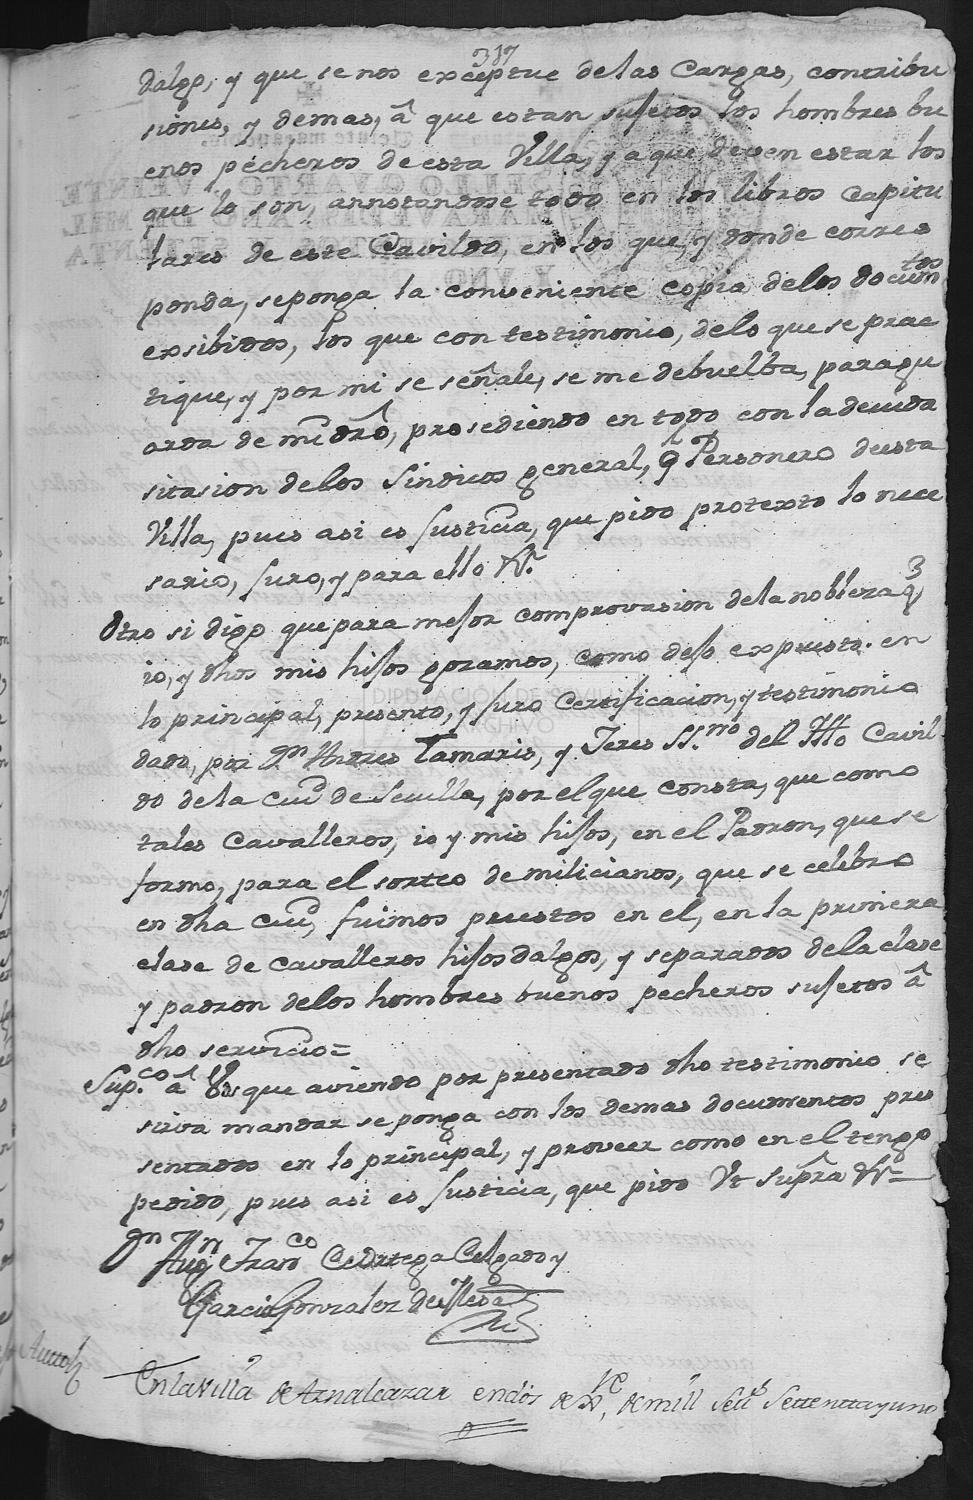 317
dalgo, y que se nos exceptue de las Cargas, contribu
siones, y demas, â que estan sujetos los hombres bu
enos pécheros de esta Villa, y a que deven estar los
que lo son, annotandose todo en los libros Capitu
lares de este Cavildo, en los que, y donde corres
ponda, se ponga la conveniente copia de los docum.tos
exsibidos, los que con testimonio, de lo que se prac
tique, y por mi se señale, se me debuelba, paragu
arda de mi dro, prosediendo en todo con la devida
sitasion de los Sindicos general, y Personero de esta
Villa, pues asi es Justicia, que pido protexto lo nece
sario, juro, y para ello &.
Otro si digo que para mejor comprovasion de la nobleza q
io, y dhos mis hijos gozamos, como dejo expuesto en
lo principal, presento, y juro Certificacion, y testimonio
dado, por Dn Andres Tamaris, y Jeres SS.no del Ill.o Cavil-
do de la Ciud de Sevilla, por el que consta, que como
tales Cavalleros, io y mis hijos, en el Padron, que se
formo, para el sorteo de milicianos, que se celebro
en dha Ciud, fuimos puestos en el, en la primera
clase de cavalleros hijosdalgos, y separados de la clase
y padron de los hombres buenos pecheros sujetos â
dho servicio=
Sup.co â Vs que aviendo por presentado dho testimonio se
sirva mandar se ponga con los demas documentos pre
sentados en lo principal, y proveer como en el tengo
pedido, pues asi es Justicia, que pido Vt supra &
Dn Aug Fran.co de Ortega Celgado y
Garci Gonzalez de Mesa
DIPUTACIÓN DE SEVILLA
ARCHIVO
Auto
En la Villa de Aznalcazar en dos de, de mill Set.s Settenttayuno